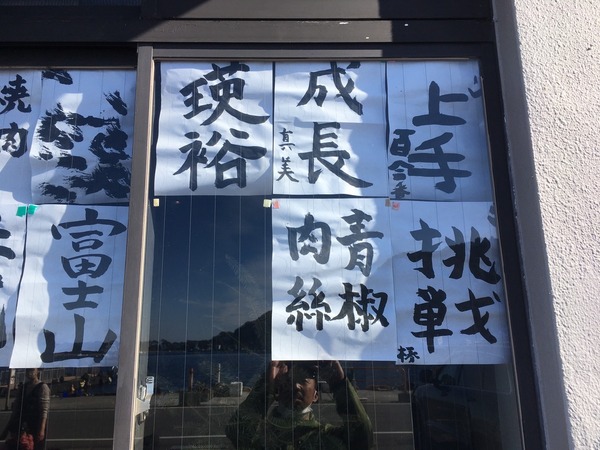 焼肉
瑛裕
成長
真美
上手
富士山
青椒
肉絲
挑戦